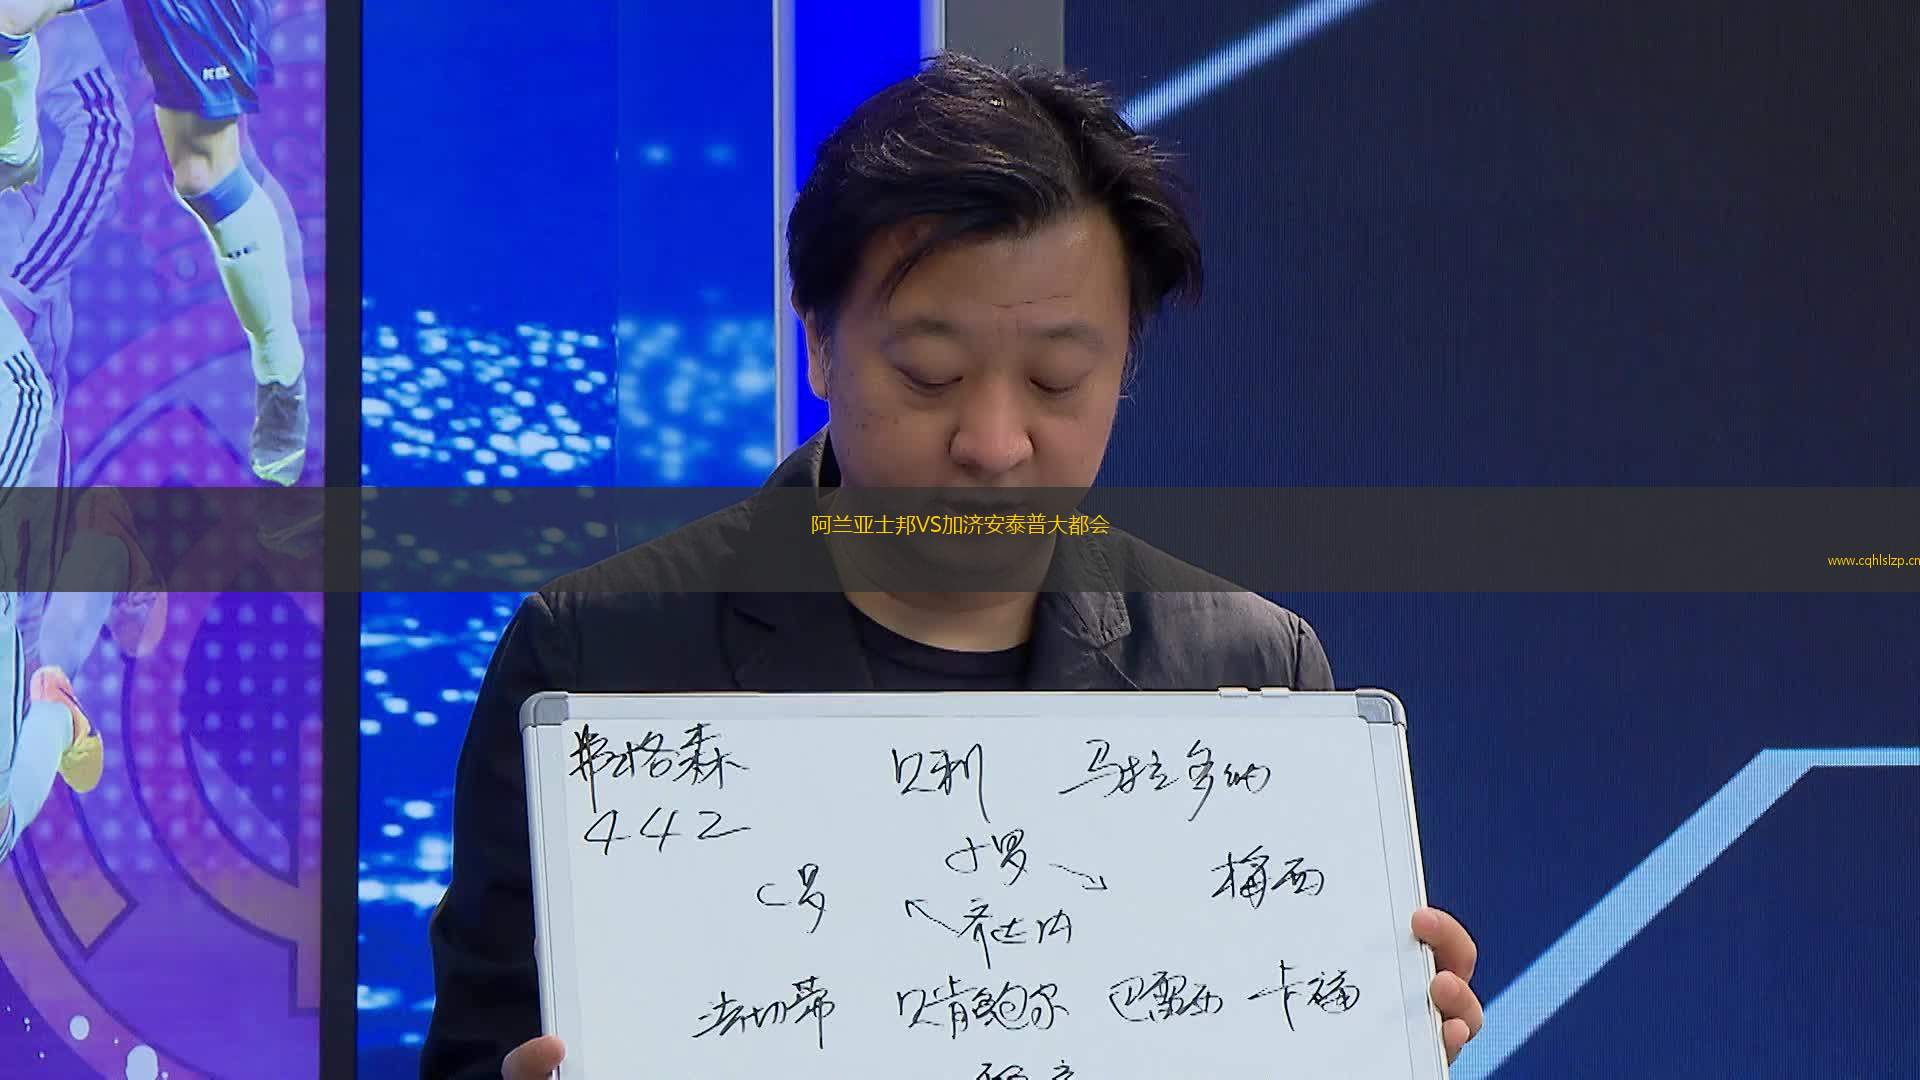 KEL
阿兰亚士邦VS加济安泰普大都会
www.cqhlslzp.cn
弗格森 贝利 马拉多纳
442
小罗
C罗 梅西
齐达内
法切蒂 贝肯鲍尔 巴雷西 卡福